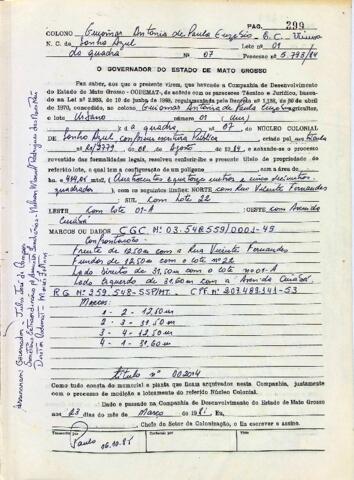 PAG. 299
COLONO Guiomar Antonia de Paula Euzébio - B.C. Viúva
N. C. da Sonho Azul Lote nº 01
da quadra nº 07 Processo nº 5.793/84
O GOVERNADOR DO ESTADO DE MATO GROSSO
Faz saber, aos que o presente virem, que havendo a Companhia de Desenvolvimento
do Estado de Mato Grosso - CODEMAT, de acordo com os pareceres Técnico e Jurídico, baseado
na Lei nº 2.935, de 10 de junho de 1969, regulamentada pelo Decreto nº 1.138, de 30 de abril
de 1970, concedido, ao colono Guiomar Antonia de Paula Euzébio agricultor, o
lote Urbano número 01 (um)
da quadra, nº 07 do NÚCLEO COLONIAL
de Sonho Azul conforme escritura Pública
nº 21/9779 de 08 de Agosto de 1984, e achando-se o processo
revestido das formalidades legais, resolveu conferir-lhe o presente título de propriedade do
referido lote, o qual a configuração de um polígono com a área de
quadrados), com os seguintes limites: NORTE com Rua Vicente Fernandes
SUL com Lote 22
LESTE com Lote 01-A OESTE com Avenida
Cuiabá
MARCOS OU DADOS CGC Nº 03.548.559/0001-49
Confrontação:
Frente de 12,50m com a Rua Vicente Fernandes
Fundos de 12,50m com o lote nº 22
Lado Direito de 31,50m com o lote nº 01-A
Lado Esquerdo de 31,60m com a Avenida Cuiabá
RG Nº 359.548-SSP/MT. CPF. Nº 203.489.141-53
Marcos:
1 - 2 - 12,50m
2 - 3 - 31,50m
3 - 4 - 12,50m
4 - 1 - 31,60m
título nº 002004
Como tudo consta do memorial e planta que ficam arquivados nesta Companhia, juntamente
com o processo de medição e loteamento do referido Núcleo Colonial.
Dado e passado na Companhia de Desenvolvimento do Estado de Mato Grosso
aos 23 dias do mês de Março de 1985 Eu,
Chefe do Setor da Colonização, o Fiz escrever e assino.
Paulo 06.10.85